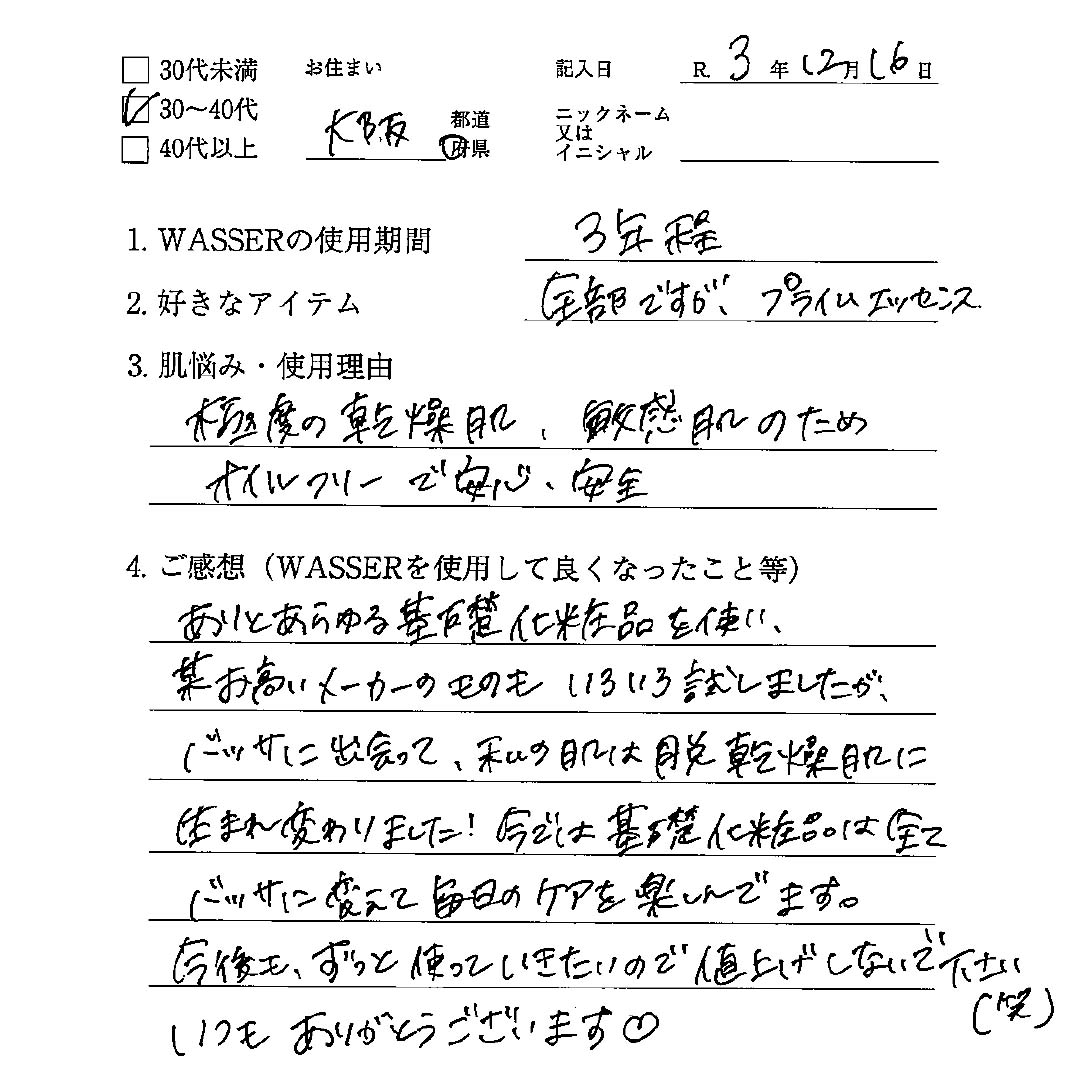 30代未満 お住まい 記入日 R. 3 年 12月 16 日
30〜40代 大阪 都道府県 ニックネーム又はイニシャル
40代以上
1. WASSERの使用期間 3年程
2. 好きなアイテム 全部ですが、プライムエッセンス
3. 肌悩み・使用理由
極度の乾燥肌、敏感肌のため
オイルフリーで安心、安全
4. ご感想（WASSERを使用して良くなったこと等）
ありとあらゆる基礎化粧品を使い、
某お高いメーカーのものも いろいろ試しましたが、
バッサに出会って、私の肌は脱乾燥肌に
生まれ変わりました！今では基礎化粧品は全て
バッサに変えて毎日のケアを楽しんでます。
今後も、ずっと使っていきたいので値上げしないで下さい
(笑)
いつもありがとうございます♡